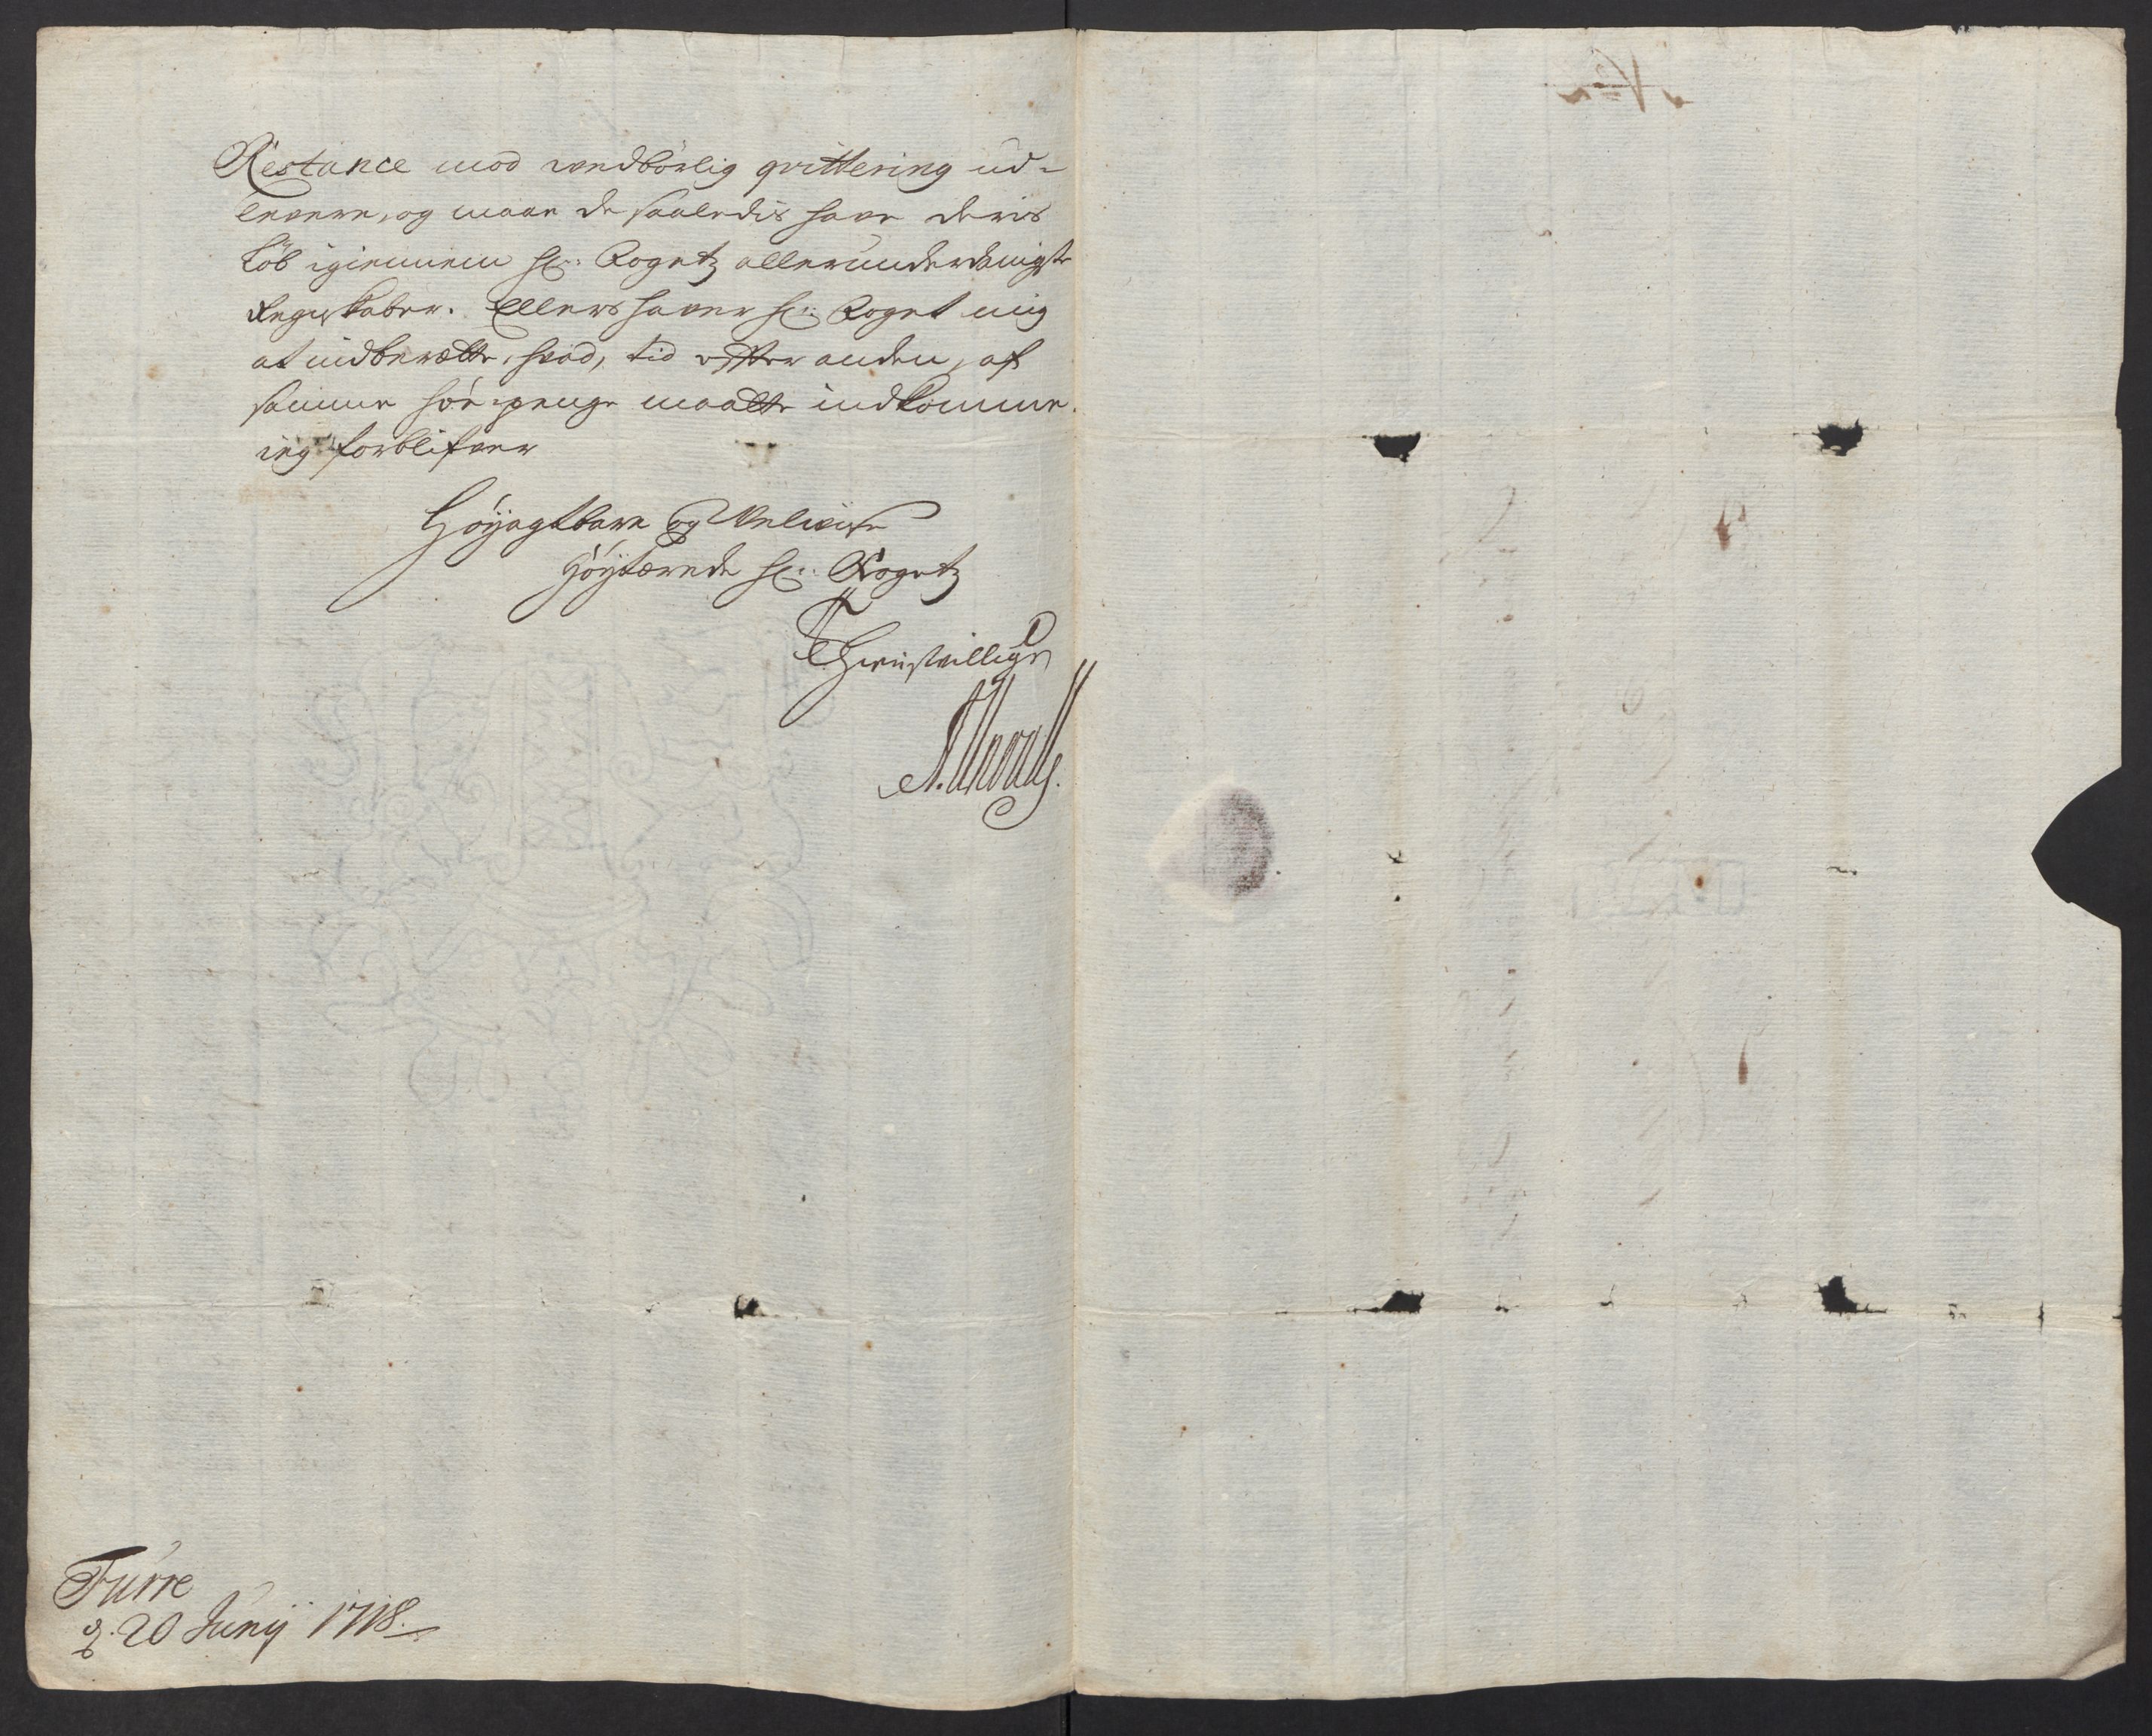 Restance mod vedbörlig qvittering ud-
levere, og maae de saaledis have deris
löb igiennem hr: Fogetz allerunderdanigste
Regnskaber. Ellers haver hr: Foget mig
at indberætte, hvad, tid effter anden, af
samme penge maatte indkomme.
ieg forblifver
Höyagtbare og Velviise
Höytærede hr: Fogetz
Thienstvilligste
Furre
d. 20 Junij 1718.